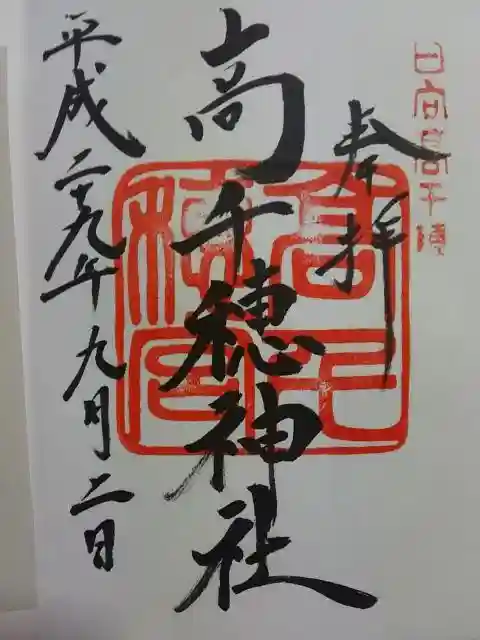 日向高千穂
奉拝
高千穂神社
平成二十九年九月二日